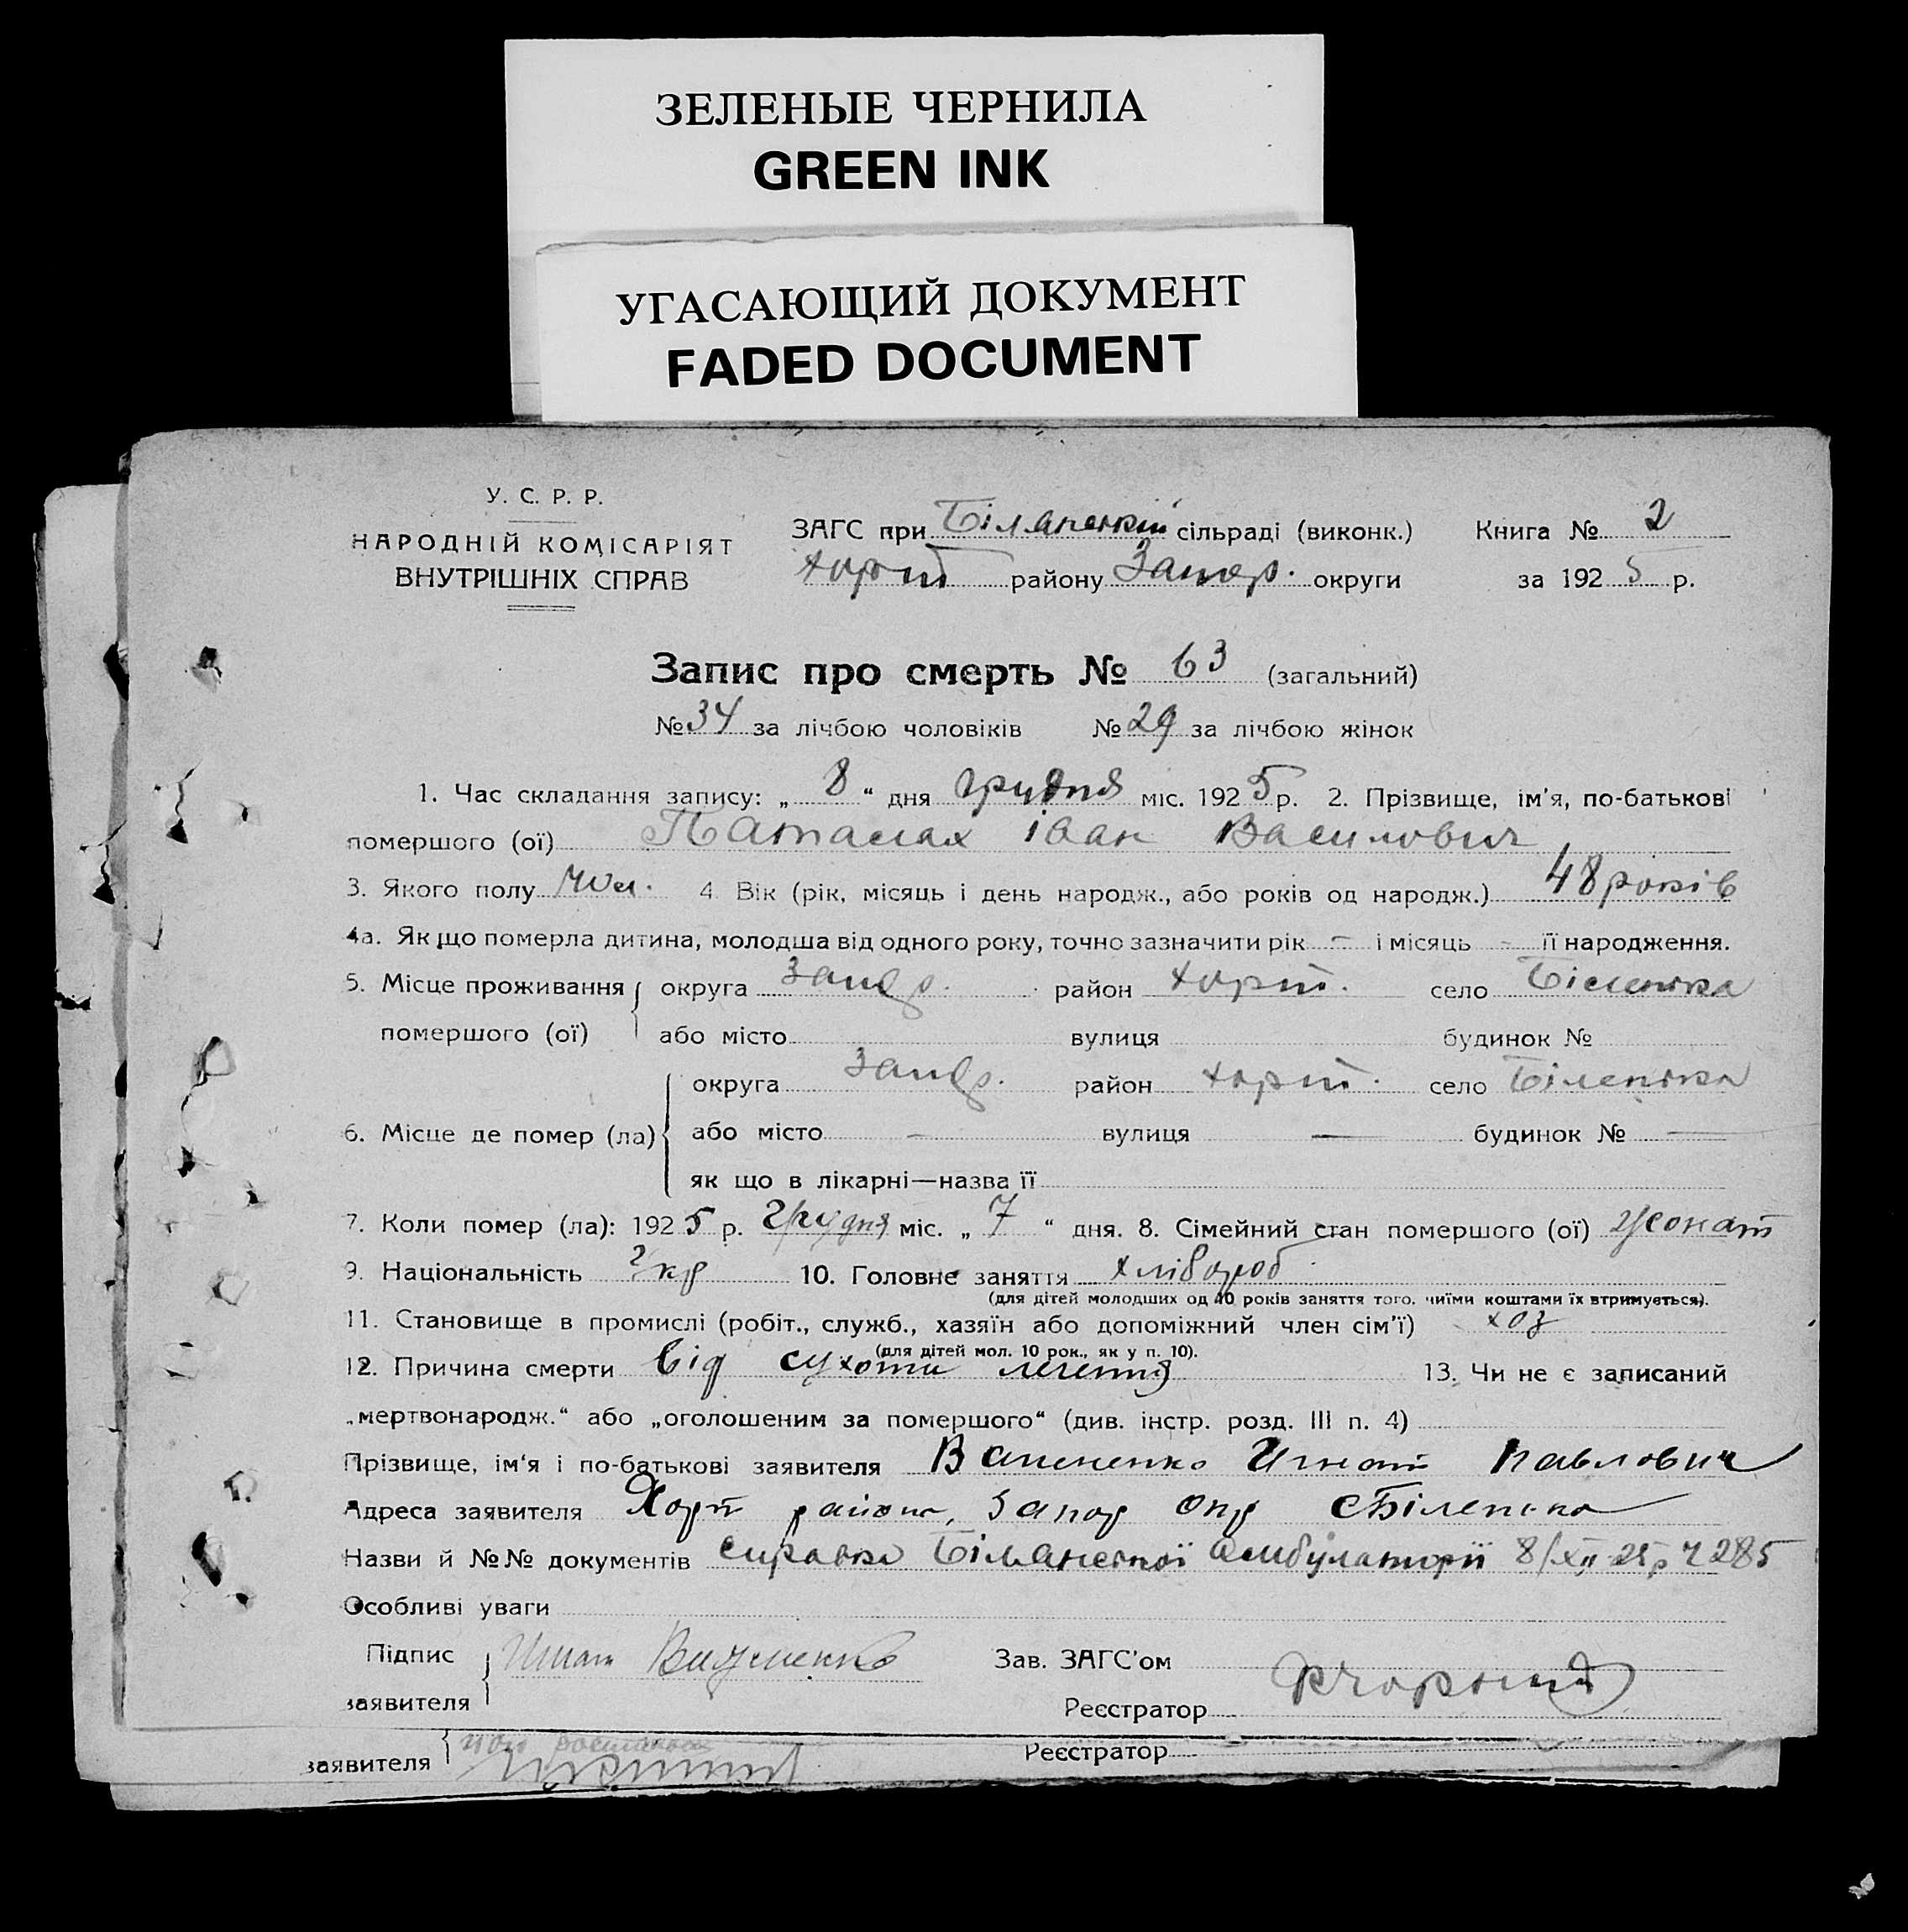 ЗЕЛЕНЫЕ ЧЕРНИЛА
GREEN INK
УГАСАЮЩИЙ ДОКУМЕНТ
FADED DOCUMENT
У. С. Р. Р.
НАРОДНІЙ КОМІСАРІЯТ
ВНУТРІШНІХ СПРАВ
ЗАГС при Біланській сільраді (виконк.)
Хорт району Запор. округи
Книга № 2
за 1925 р.
Запис про смерть № 63 (загальний)
№ 34 за лічбою чоловіків № 29 за лічбою жінок
1. Час складання запису: „ 8 “ дня грудня міс. 1925 р. 2. Прізвище, ім'я, по-батькові
помершого (ої) Іван Василович
3. Якого полу чол. 4. Вік (рік, місяць і день народж., або років од народж.) 48 років
4а. Як що померла дитина, молодша від одного року, точно зазначити рік – і місяць - її народження.
5. Місце проживання помершого (ої) округа Запор. район Хорт. село Біленька
або місто вулиця будинок №
6. Місце де помер (ла) округа Запор. район Хорт. село Біленька
або місто — вулиця — будинок № —
як що в лікарні—назва її
7. Коли помер (ла): 1925 р. грудня міс. „ 7 “ дня. 8. Сімейний стан помершого (ої) жонат
9. Національність Укр 10. Головне заняття хлібороб
(для дітей молодших од 10 років заняття того, чиїми коштами їх втримується).
11. Становище в промислі (робіт., служб., хазяїн або допоміжний член сім'ї) хоз
(для дітей мол. 10 рок., як у п. 10).
12. Причина смерти від сухоти легенів 13. Чи не є записаний
„мертвонародж.“ або „оголошеним за помершого“ (див. інстр. розд. III п. 4)
Прізвище, ім'я і по-батькові заявителя Игнат Павлович
Адреса заявителя Хорт району, Запор Окр с Біленька
Назви й №№ документів справка Біланської Амбулаторії 8/XII 25 р Ч 285
Особливі уваги
Підпис заявителя Игнат
Зав. ЗАГС'ом
Реєстратор
заявителя
Реєстратор